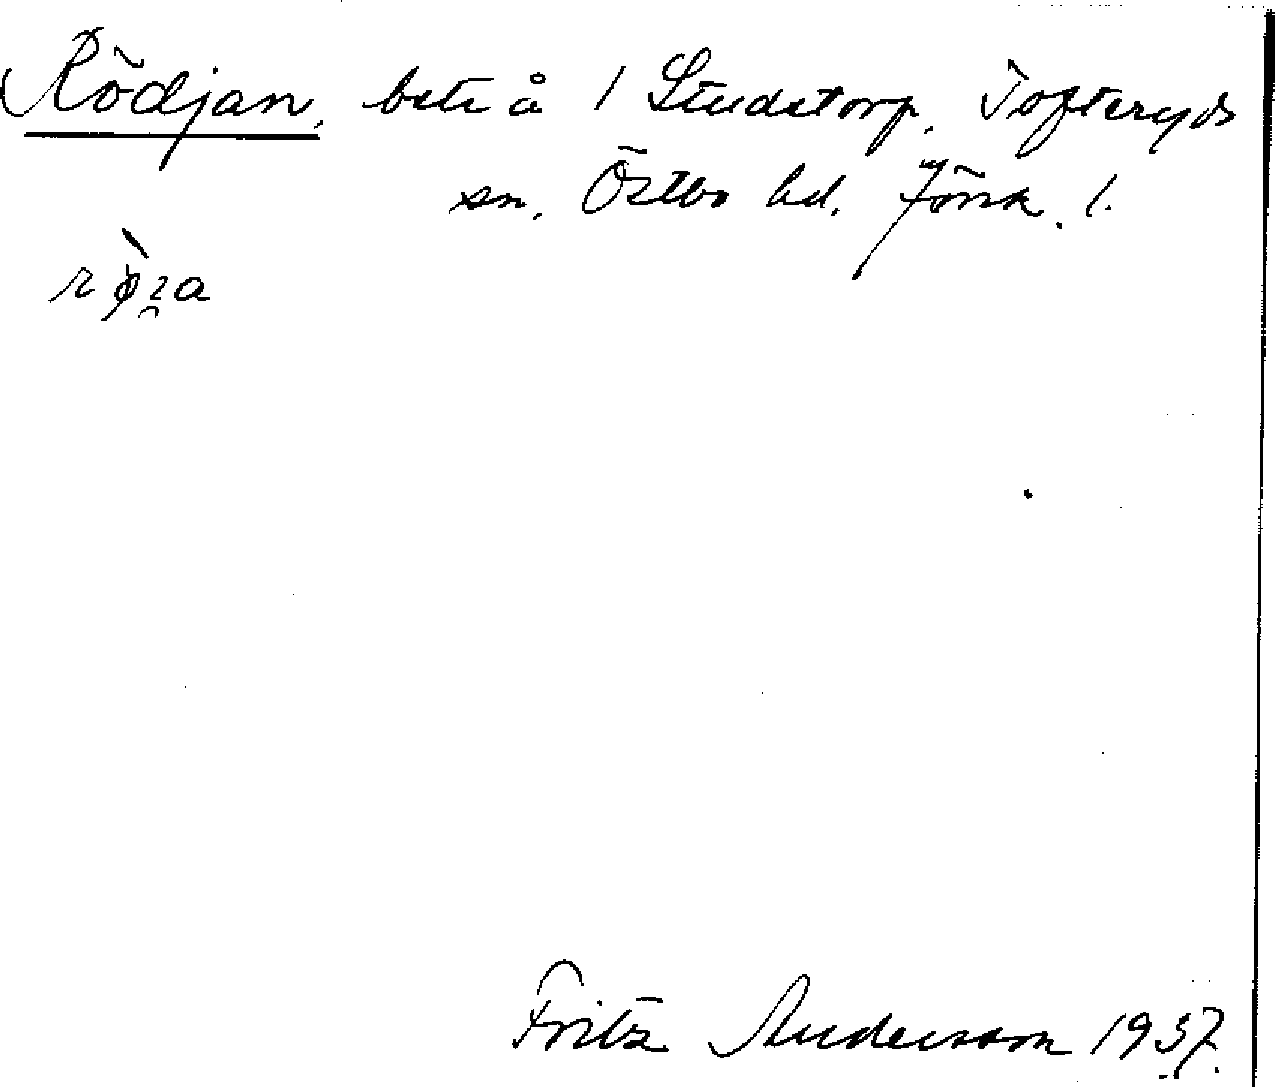 Rödjan, bete å 1 Studstorp, Tofteryds
sn, Östbo hd, Jönk. l.
Fritz Andersson 1937.